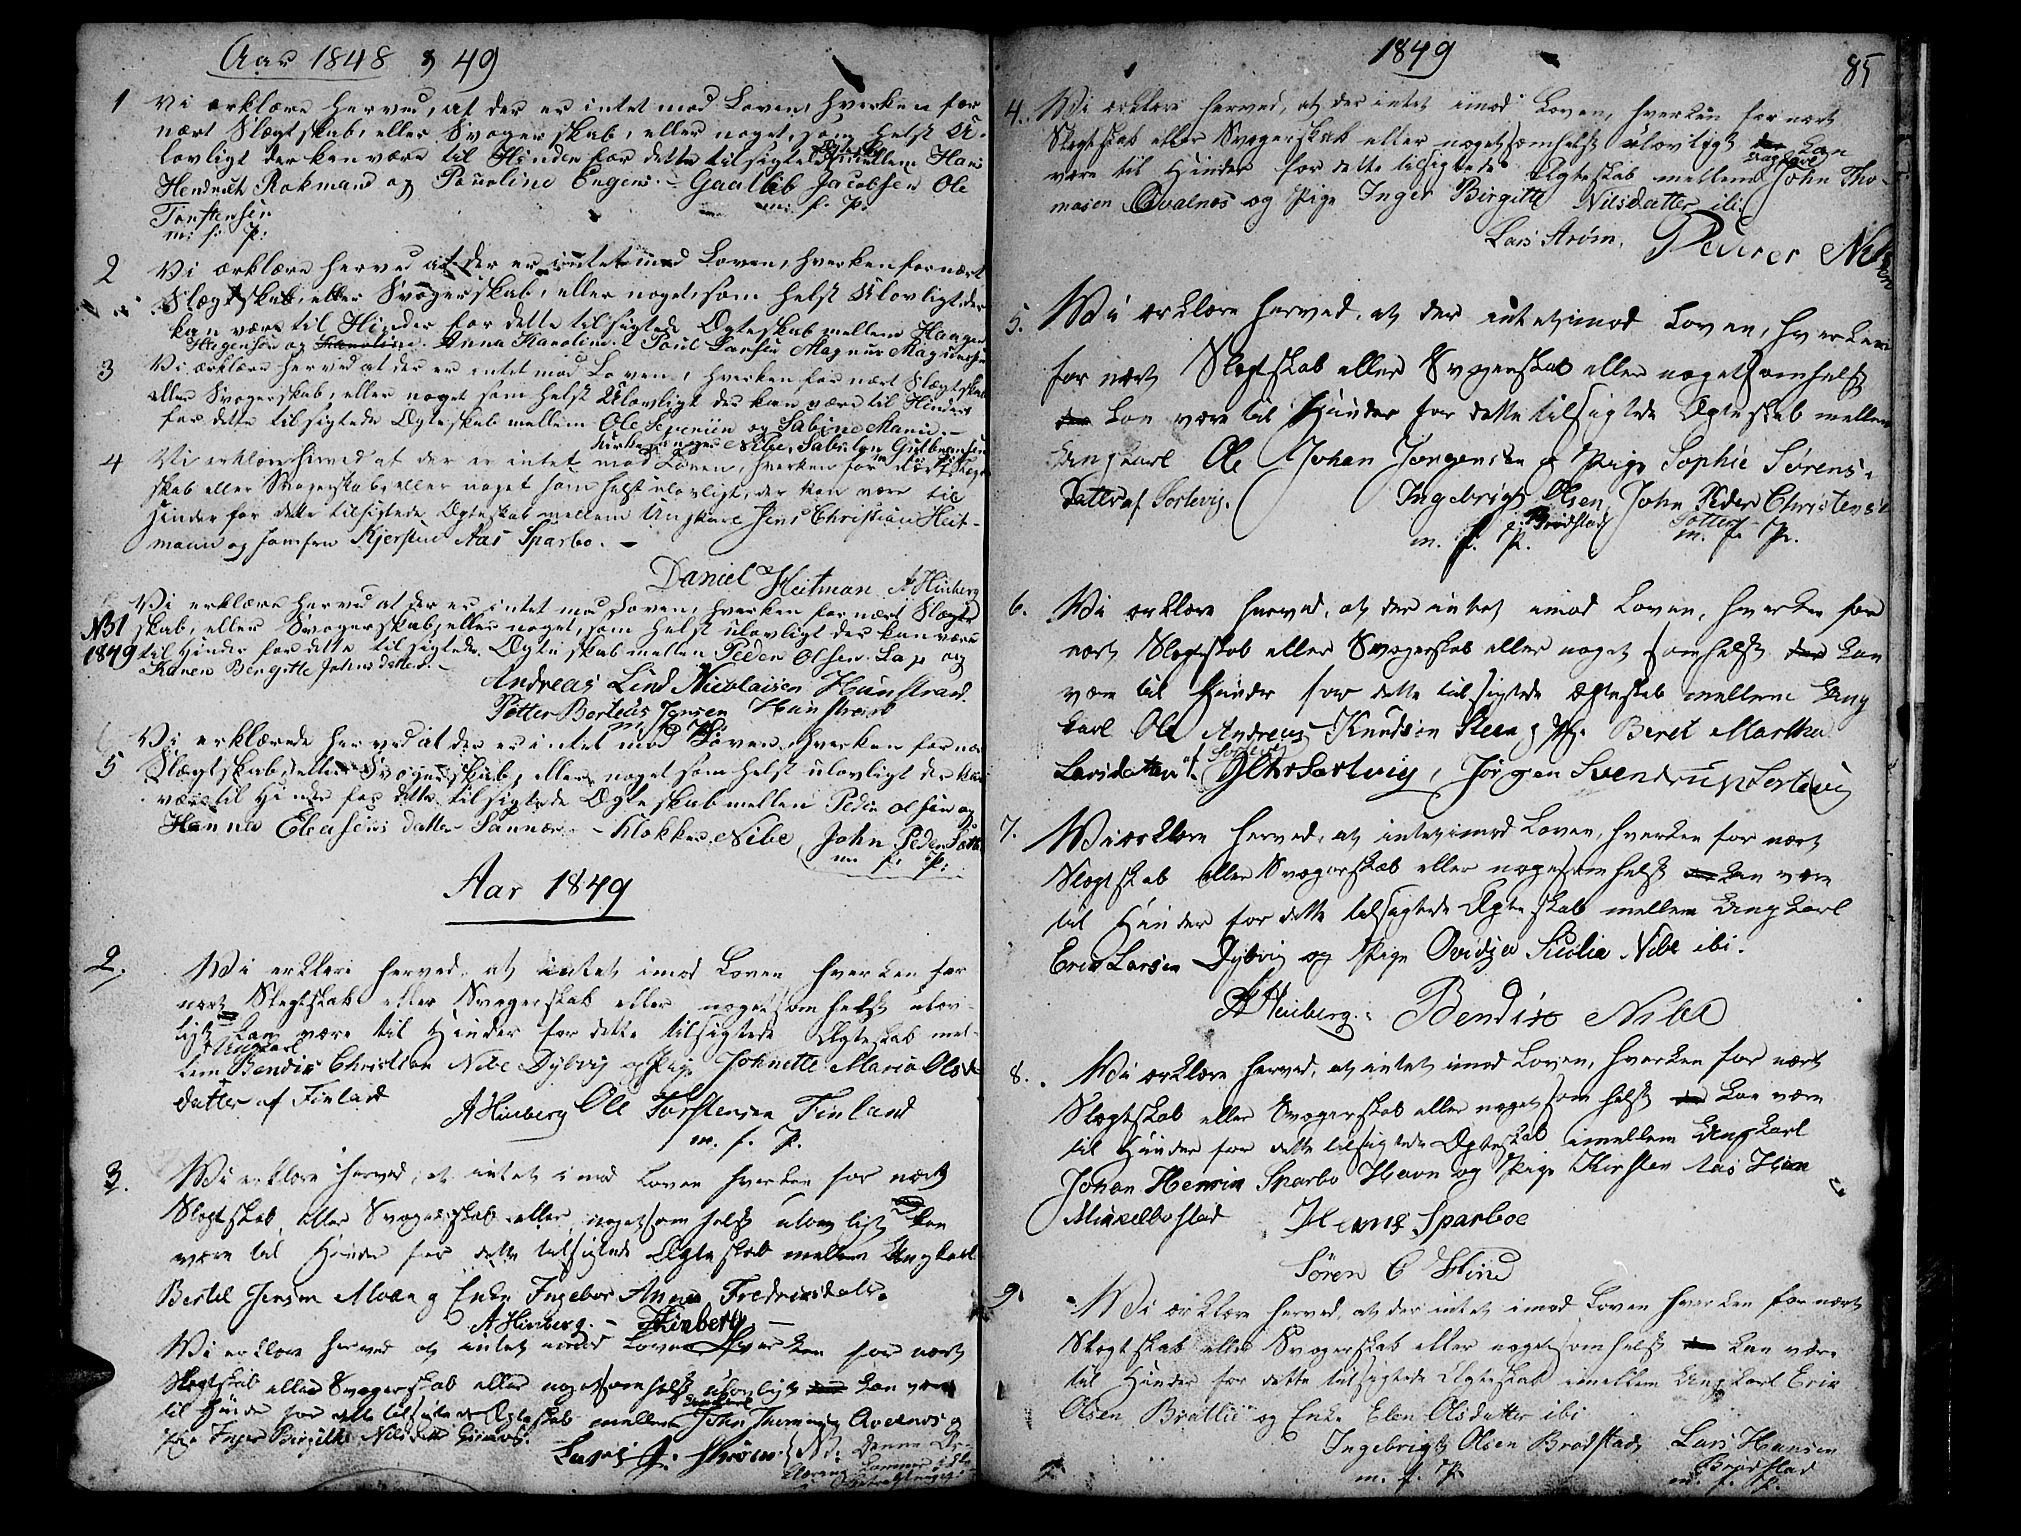 Aar 1848 & 49
1 Vi erklære herved, at der er intet mod Loven, hverken for
nært Slægtskab, eller Svogerskab, eller noget, som helst U-
lovligt der kan være til Hinder for dette tilsigtede Ægteskab mellem Hans
Hendrich Rokmand og Pauline Eugens. Gaatlib Jacobsen Ole
Torstensen m: f: P:
m: f: P:
2 Vi erklære herved at der er intet mod Loven, hverken for nært
Slægtskab, eller Svogerskab, eller noget, som helst Ulovligt, der
kan være til Hinder for dette tilsigtede Ægteskab mellem Haagen
Hagensen og Anna Karoline. Poul Larsen Magnus Magnussen
3 Vi erklære herved at der er intet mod Loven, hverken for nært Slægtskab
eller Svogerskab, eller noget som helst Ulovligt der kan være til Hinder
for dette tilsigtede Ægteskab mellem Ole Jepensen og Sabine Marie.
Kirkesanger Nibe,
4 Vi erklære herved at der er intet mod Loven, hverken for nært Slægt
skab eller Svogerskab, eller noget som helst ulovligt, der kan være til
Hinder for dette tilsigtede Ægteskab mellem Ungkarl Jens Christian Heit-
mann og Jomfru Kjerstine Aas Sparbo.
Daniel Heitman A Hinberg
Vi erklære herved at der er intet mod Loven, hverken for nært Slægt
N31 skab, eller Svogerskab, eller noget, som helst ulovligt der kan være
1849 til Hinder for dette tilsigtede Ægteskab mellem Peder Olsen Lap og
Karen Bergitte Johnsdatter.
Andreas Lind Nicolaisen Hunstrand
Petter Berteus Jensen Hunstrand
m f P
Vi erklærede herved at der er intet mod Loven hverken for nær
5 Slægtskab, eller Svogerskab, eller noget som helst ulovligt der kan
være til Hinder for dette tilsigtede Ægteskab mellem Peder Olsen og
Hanna Eleasens datter Sannær. Klokker Nibe, John Peder
m: f: P:
Aar 1849
2. Wi erklære herved, at intet imod Loven hverken for
nært Slægtskab eller Svogerskab eller noget somhelst ulov-
ligt kan være til Hinder for dette tilsigtede Ægteskab mel-
Ungkarl
lem Bendix Christian Nibe Dybvig og Pige Johnette Maria Ols
datter af Finland
A Hinberg Ole Torstensen Finland
m. f. P.
3. Wi erklære herved, at intet imod Loven hverken for nært
Slægtskab, eller Svogerskab eller noget som helst ulovligt kan
være til Hinder for dette tilsigtede Ægteskab mellem Ungkarl
Bertel Jensen Moen og Enke Ingebor Anna Fredriksdatter.
A Hinberg. Hinberg
Wi erklære herved at intet imod Loven hverken for nært
Slægtskab eller Svogerskab eller noget somhelst ulovligt kan være
til Hinder for dette tilsigtede Ægteskab mellem John Thomasen Qvalnæs og
Pige Inger Birgitte Nilsdatter
Lars J: Strøm. NB. Denne Er-
klæring kommer
1849
85
4. Wi erklære herved, at der intet imod Loven, hverken for nært
Slægtskab eller Svogerskab eller noget somhelst ulovligt kan
Ungkarl
være til Hinder for dette tilsigtede Ægteskab mellem John Tho-
masen Qvalnæs og Pige Inger Birgitte Nilsdatter ibi.
Lars Strøm. Peder Nilsen
5. Wi erklære herved, at der intet imod Loven, hverken
for nært Slægtskab eller Svogerskab eller noget somhelst
kan være til Hinder for dette tilsigtede Ægteskab mellem
Ungkarl Ole Johan Jørgensen og Pige Sophie Sørens-
datter af Sortevig. Ingebrigt Olsen, John Peder Christens
Brødstad
m. f. P. m. f. P.
6. Wi erklære herved, at der intet imod Loven, hverken for
nært Slægtskab eller Svogerskab eller noget somhelst kan
være til Hinder for dette tilsigtede Ægteskab mellem Ung
karl Ole Andreas Knudsen Steen og Pige Beret Martha
Larsdatter af Sortevig, Jørgen Svendsen Sortevig
7. Wi erklære herved, at intet imod Loven, hverken for nært
Slægtskab eller Svogerskab eller noget somhelst kan være
til Hinder for dette tilsigtede Ægteskab mellem Ungkarl
Erik Larsen Dybvig og Pige Ovidia Sicilia Nibe ibi.
A Heinberg. Bendix Nibe
8. Wi erklære herved, at intet imod Loven, hverken for nært
Slægtskab eller Svogerskab eller noget somhelst kan være
til Hinder for dette tilsigtede Ægteskab imellem Ungkarl
Johan Henrik Sparbo Havn og Pige Kirsten Aas Hind
Mikkelbostad Hems Sparboe
Søren C Hind
9. Wi erklære herved, at der intet imod Loven hverken for nært
Slægtskab eller Svogerskab eller noget somhelst kan være
til Hinder for dette tilsigtede Ægteskab imellem Ungkarl Erik
Olsen Bratlie og Enke Elen Olsdatter ibi
Ingebrigt Olsen Brødstad, Lars Hansen
Brødstad
m. f. P. m. f. P.